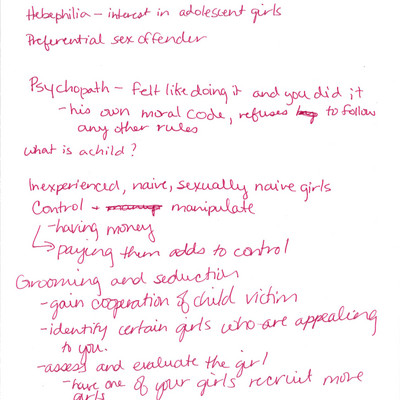 Hebephilia - interest in adolescent girls
Preferential sex offender
Psychopath - felt like doing it and you did it
- his own moral code, refuses to follow
any other rules
what is a child?
Inexperienced, naive, sexually naive girls
Control + manipulate
- having money
↳ paying them adds to control
Grooming and seduction
- gain cooperation of child victim
- identify certain girls who are appealing
to you.
- assess and evaluate the girl
- have one of your girls recruit more
girls